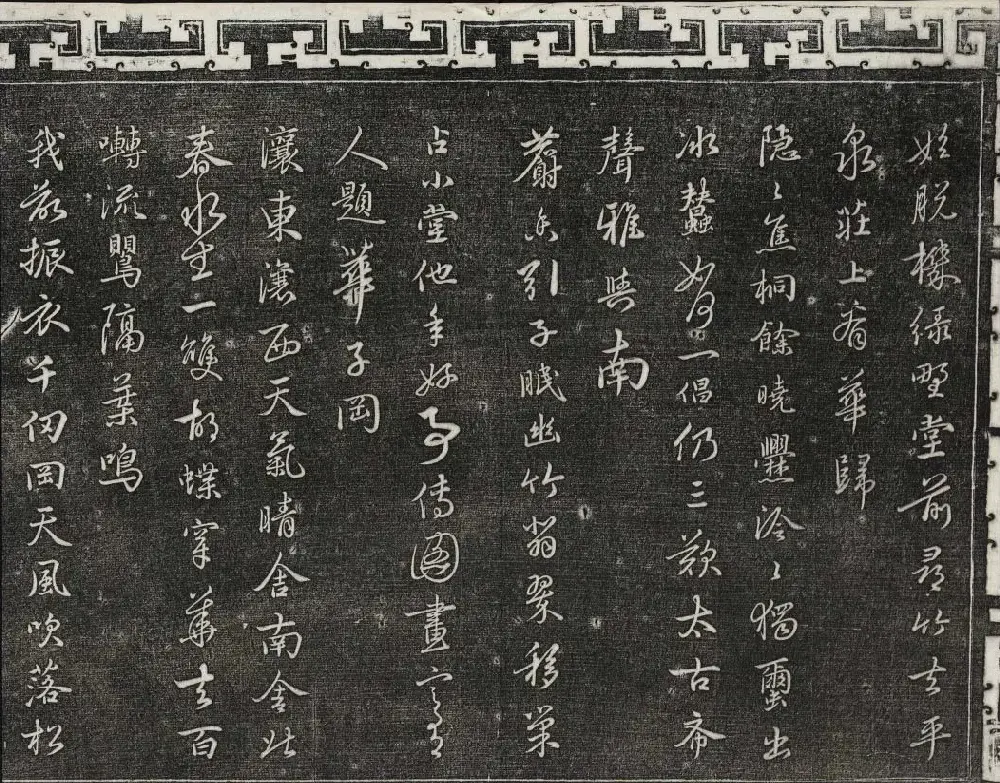 始脱樸緑野堂前尋竹去平
泉莊上看華歸
隐〻焦桐餘曉爨泠〻獨璽出
冰蠶如何一倡仍三歎太古希
聲雅與南
麝香引子眠幽竹翡翠移巢
占小堂他年好事傳圖畫定有
人題華子岡
瀼東瀼西天氣晴舍南舍北
春水生一雙胡蝶穿華去百
囀流鶯隔葉鳴
我欲振衣千仞岡天風吹落松